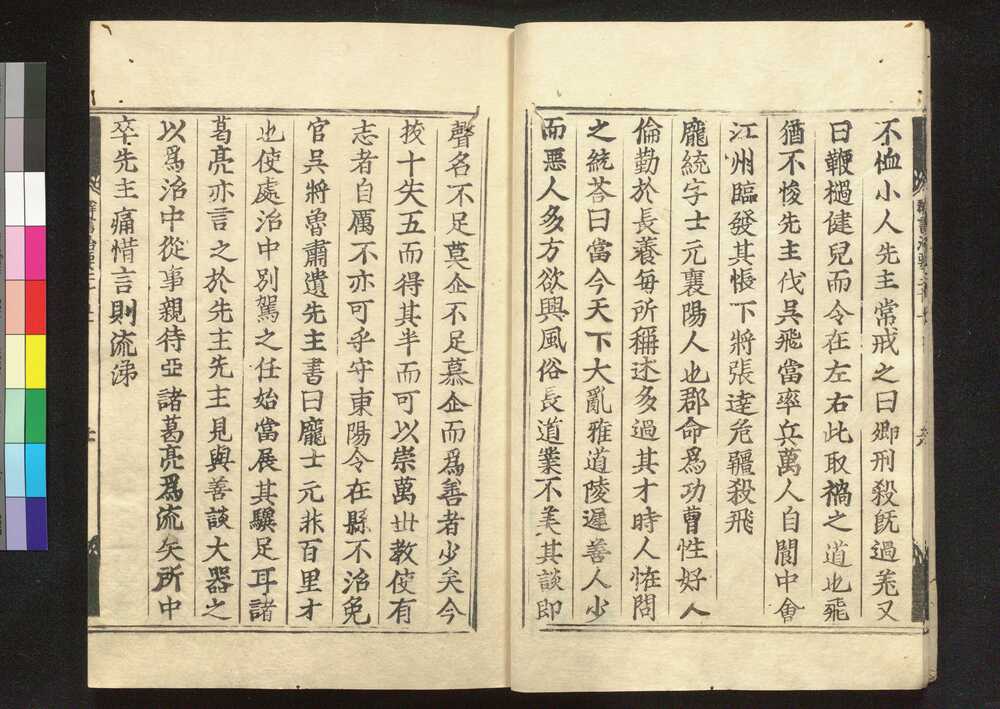 不恤小人先主常戒之曰卿刑殺既過差又
曰鞭檛健兒而令在左右此取禍之道也飛
猶不悛先主伐吳飛當率兵萬人自閬中會
江州臨發其帳下將張達危疆殺飛
龐統字士元襄陽人也郡命爲功曹性好人
倫勤於長養每所稱述多過其才時人恠問
之統荅曰當今天下大亂雅道陵遲善人少
而惡人多方欲興風俗長道業不美其談即
聲名不足莫企不足慕企而爲善者少矣今
拔十失五而得其半而可以崇萬世教使有
志者自厲不亦可乎守東陽令在縣不治免
官吳將魯肅遺先主書曰龐士元非百里才
也使處治中別駕之任始當展其驥足耳諸
葛亮亦言之於先主先主見與善談大器之
以爲治中從事親待亞諸葛亮爲流矢所中
卒先主痛惜言則流涕